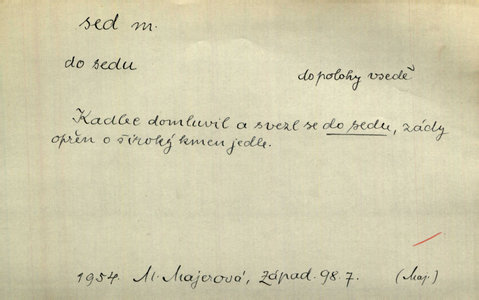 sed m.
do sedu
do polohy vsedě
Kadlec domluvil a svezl se do sedu, zády
opřen o široký kmen jedle.
1954. M. Majerová, Západ. 98. 7. (Maj.)